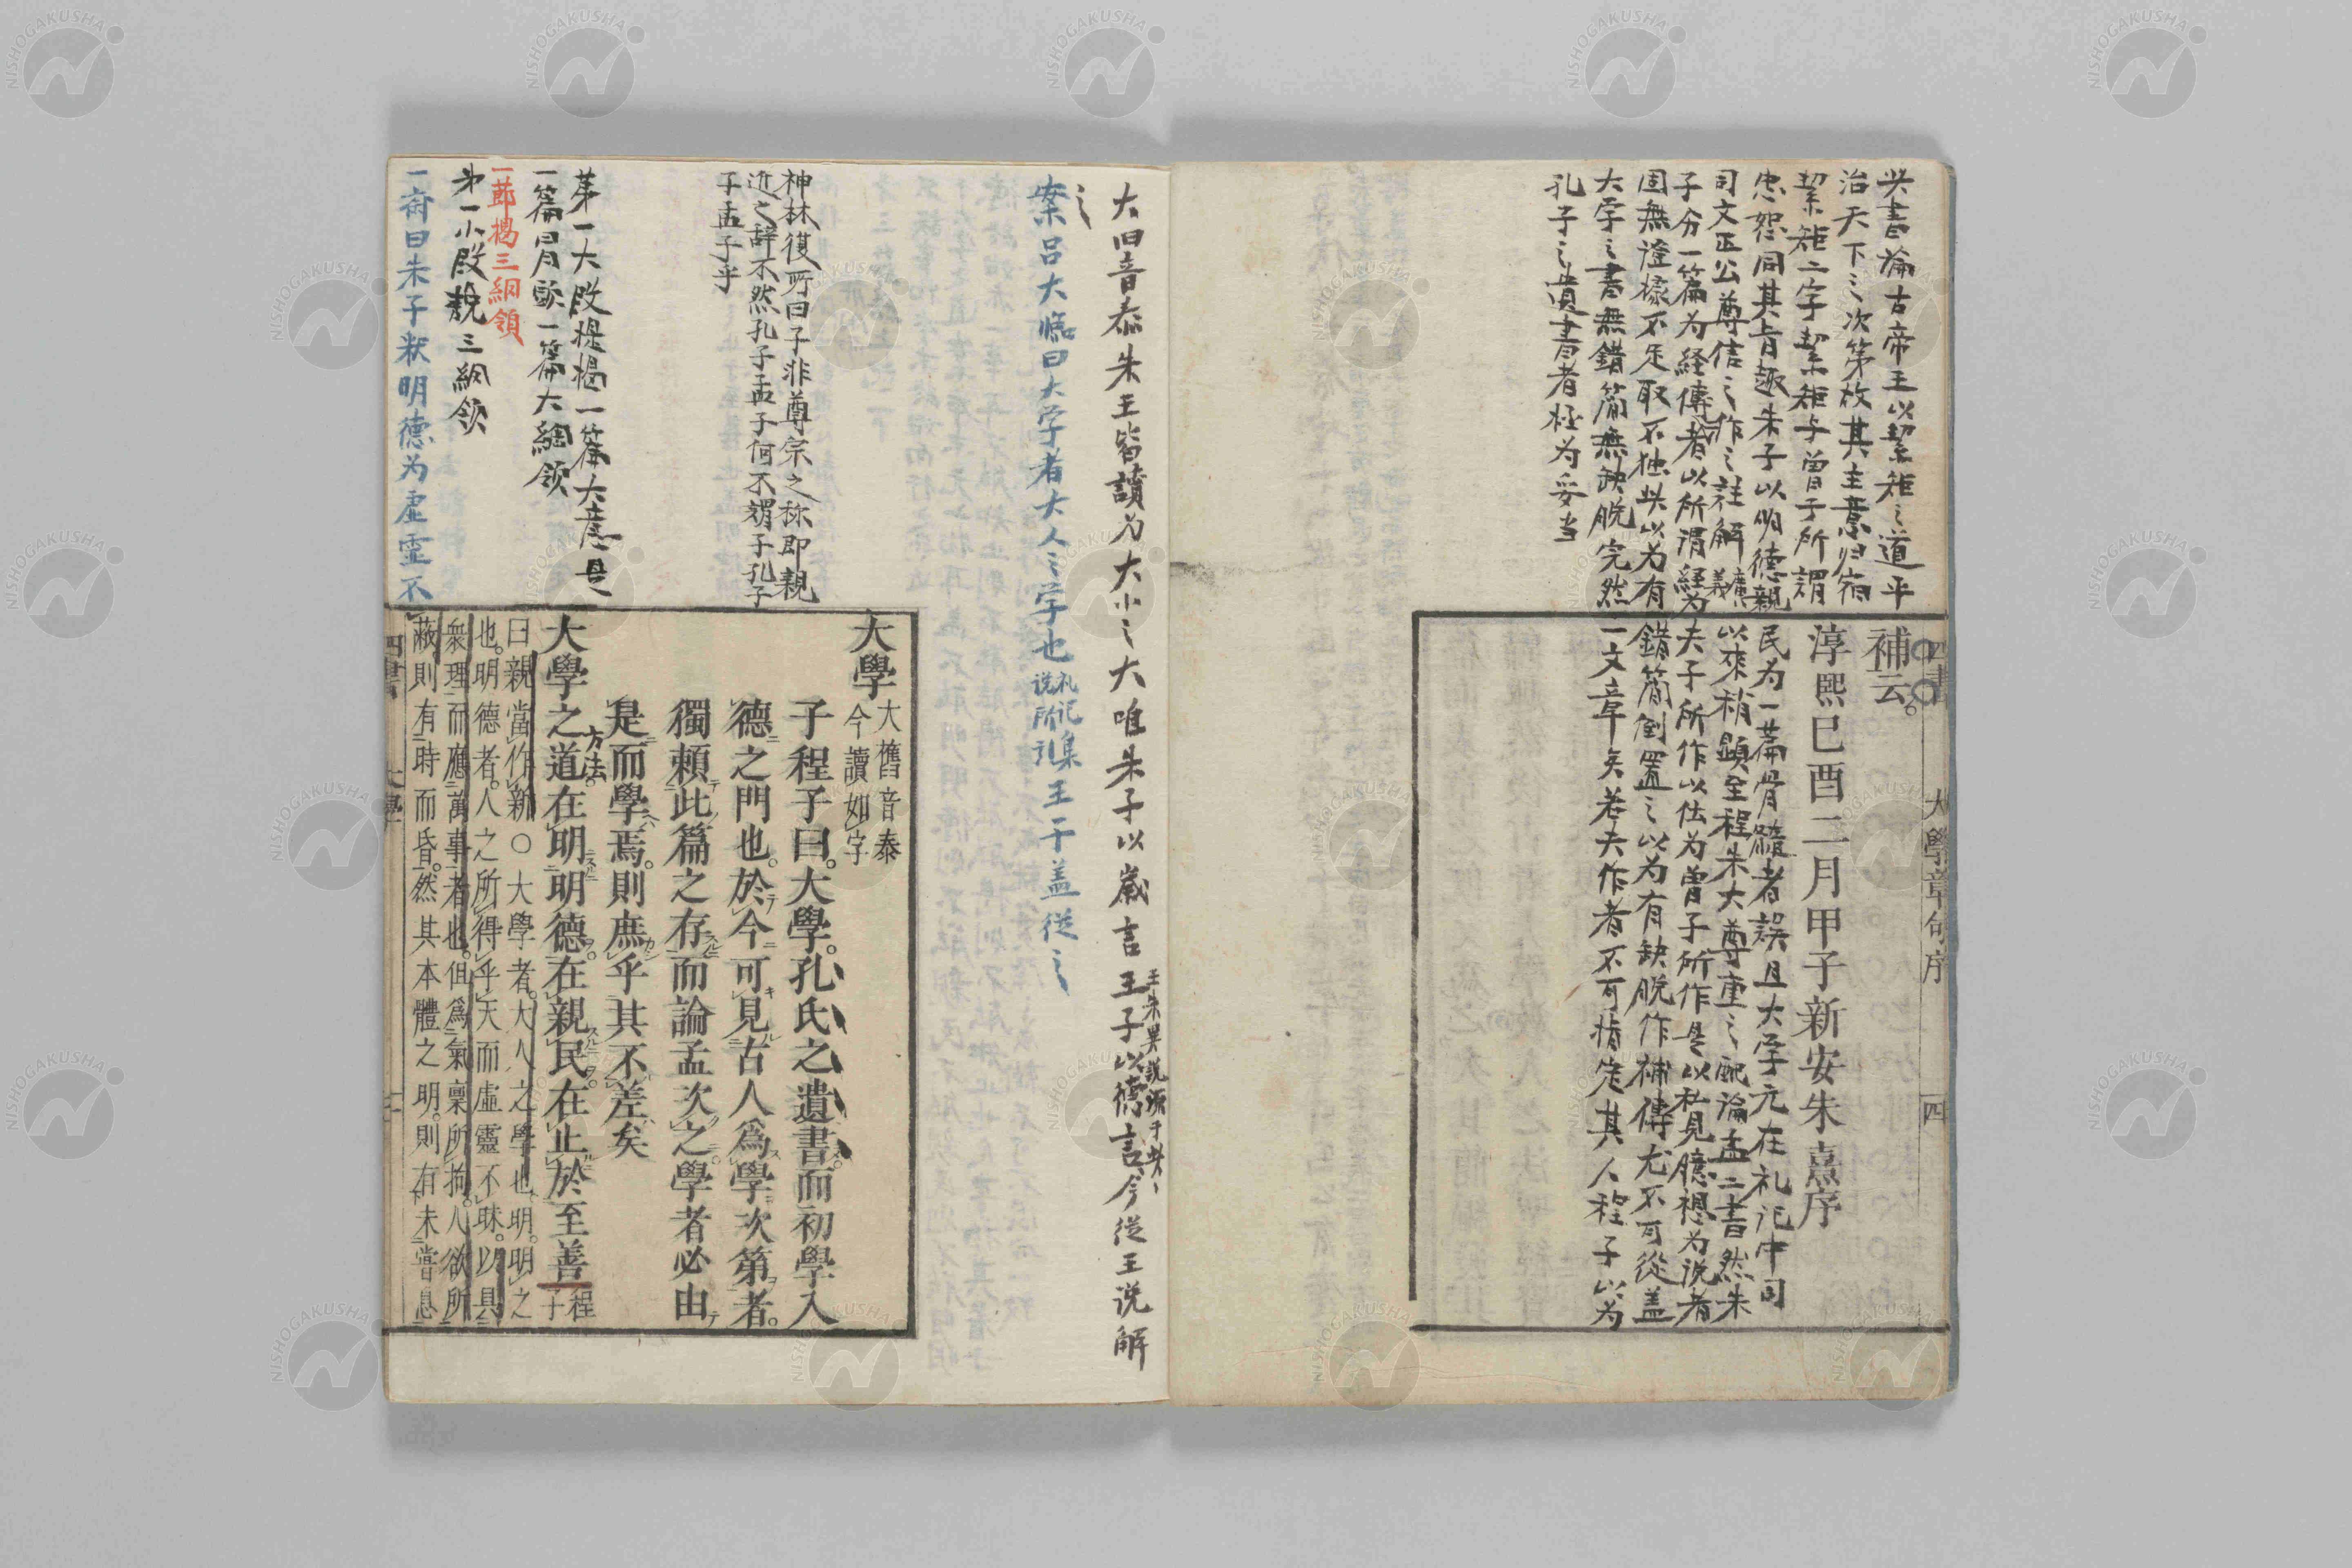 四書
大學章句序
四
補云。
淳熙己酉二月甲子新安朱熹序
𠀋書論古帝王以絜矩之道平
治天下之次第故其主意归宿
絜矩二字絜矩与曽子所謂
忠恕同其旨趣朱子以明德親
民为一萹骨髓者誤且大孚元在礼记中司
司文正公尊信之作之註解廣義
以來稍顕至程朱大尊重之配論孟二書然朱
子分一篇为経傳者以所谓経为
夫子所作以伝为曽子所作是以私見臆想为说者
固無證㨿不足取不独此以为有
錯简倒置之以为有缺脱作補傳尤不可從盖
大孚之書無錯简無缺脱完然
一文章矣若夫作者不可指定其人程子以为
孔子之遺書者极为妥当
大旧音泰朱王皆讀为大小之大唯朱子以歳言王子以徳言今従王说解
之
案吕大临曰大孚者大人之学也礼记集说所引王子盖従之
神林復所曰子非尊宗之称即親
近之辞不然孔子孟子何不謂子孔子
子孟子乎
第一大段提揭一篇大意且
一篇冐頭一篇大綱領
一節揭三綱領
第一小段説三綱領
一斎曰朱子釈明德为虚霊不
大學
大舊音泰
今讀如字
子程子曰。大學。孔氏之遺書。而初學入
德之門也。於今可見古人爲學次第者。
獨賴此篇之存而論孟次之學者必由
是而學焉。則庶乎其不差矣
方法
大學之道在明明德。在親民。在止於至善
程子
曰親當作新○大學者。大人之學也明。明之
也。明德者。人之所得乎天而虛靈不昧。以具
衆理而應萬事者也。但爲氣稟所拘。人欲所
蔽則有時而昏。然其本體之明。則有未嘗息
四書
大學
NISHOGAKUSHA